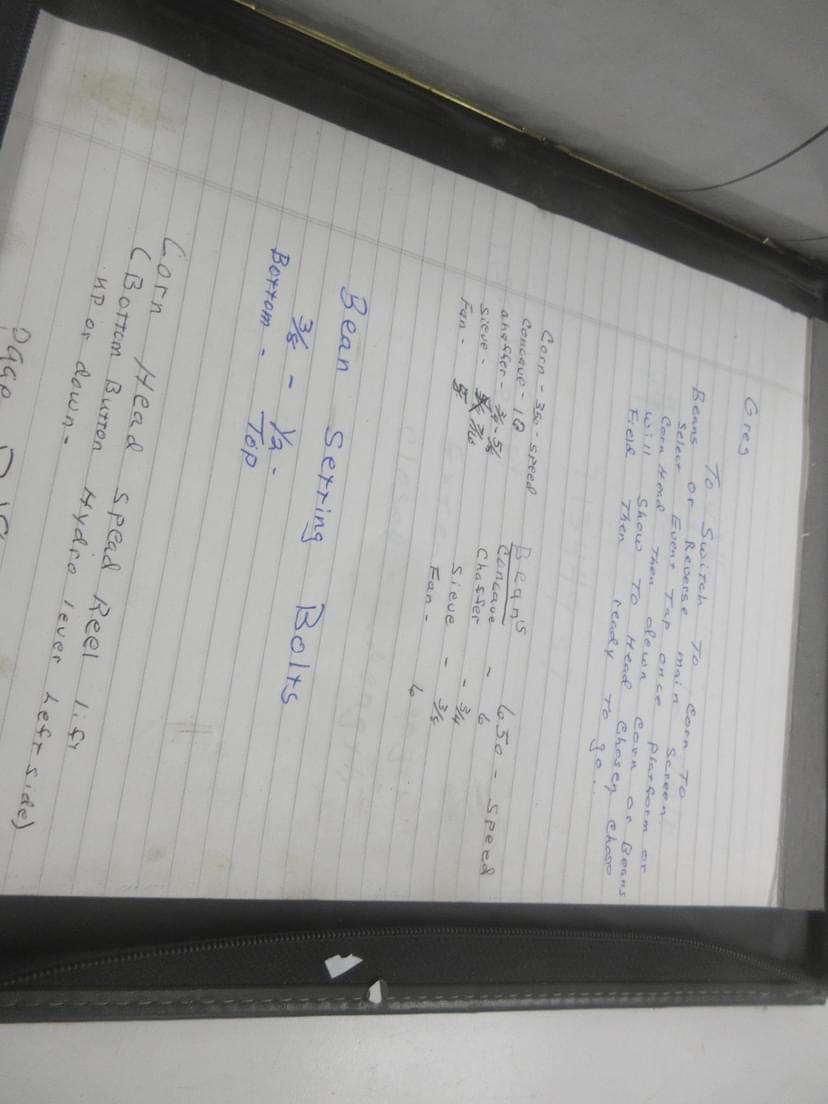 Greg
To Switch To Corn To
Beans or Reverse main Screen
Select Event Tap once Platform or
Corn Head Then down Corn or Beans
will Show To Head Chosen Chose
Field Then ready To go...
Corn - 350 - speed
Concave - 18
Sieve -
Fan - 5
Beans
650 - Speed
Concave - 6
Chaffer - 3/4
Sieve - 3/8
Fan - 6
Bean Setting Bolts
3/8 - 1/2 -
Bottom - Top
Corn Head Spead Reel lift
(Bottom Button Hydro lever Left side)
up or down -
Page